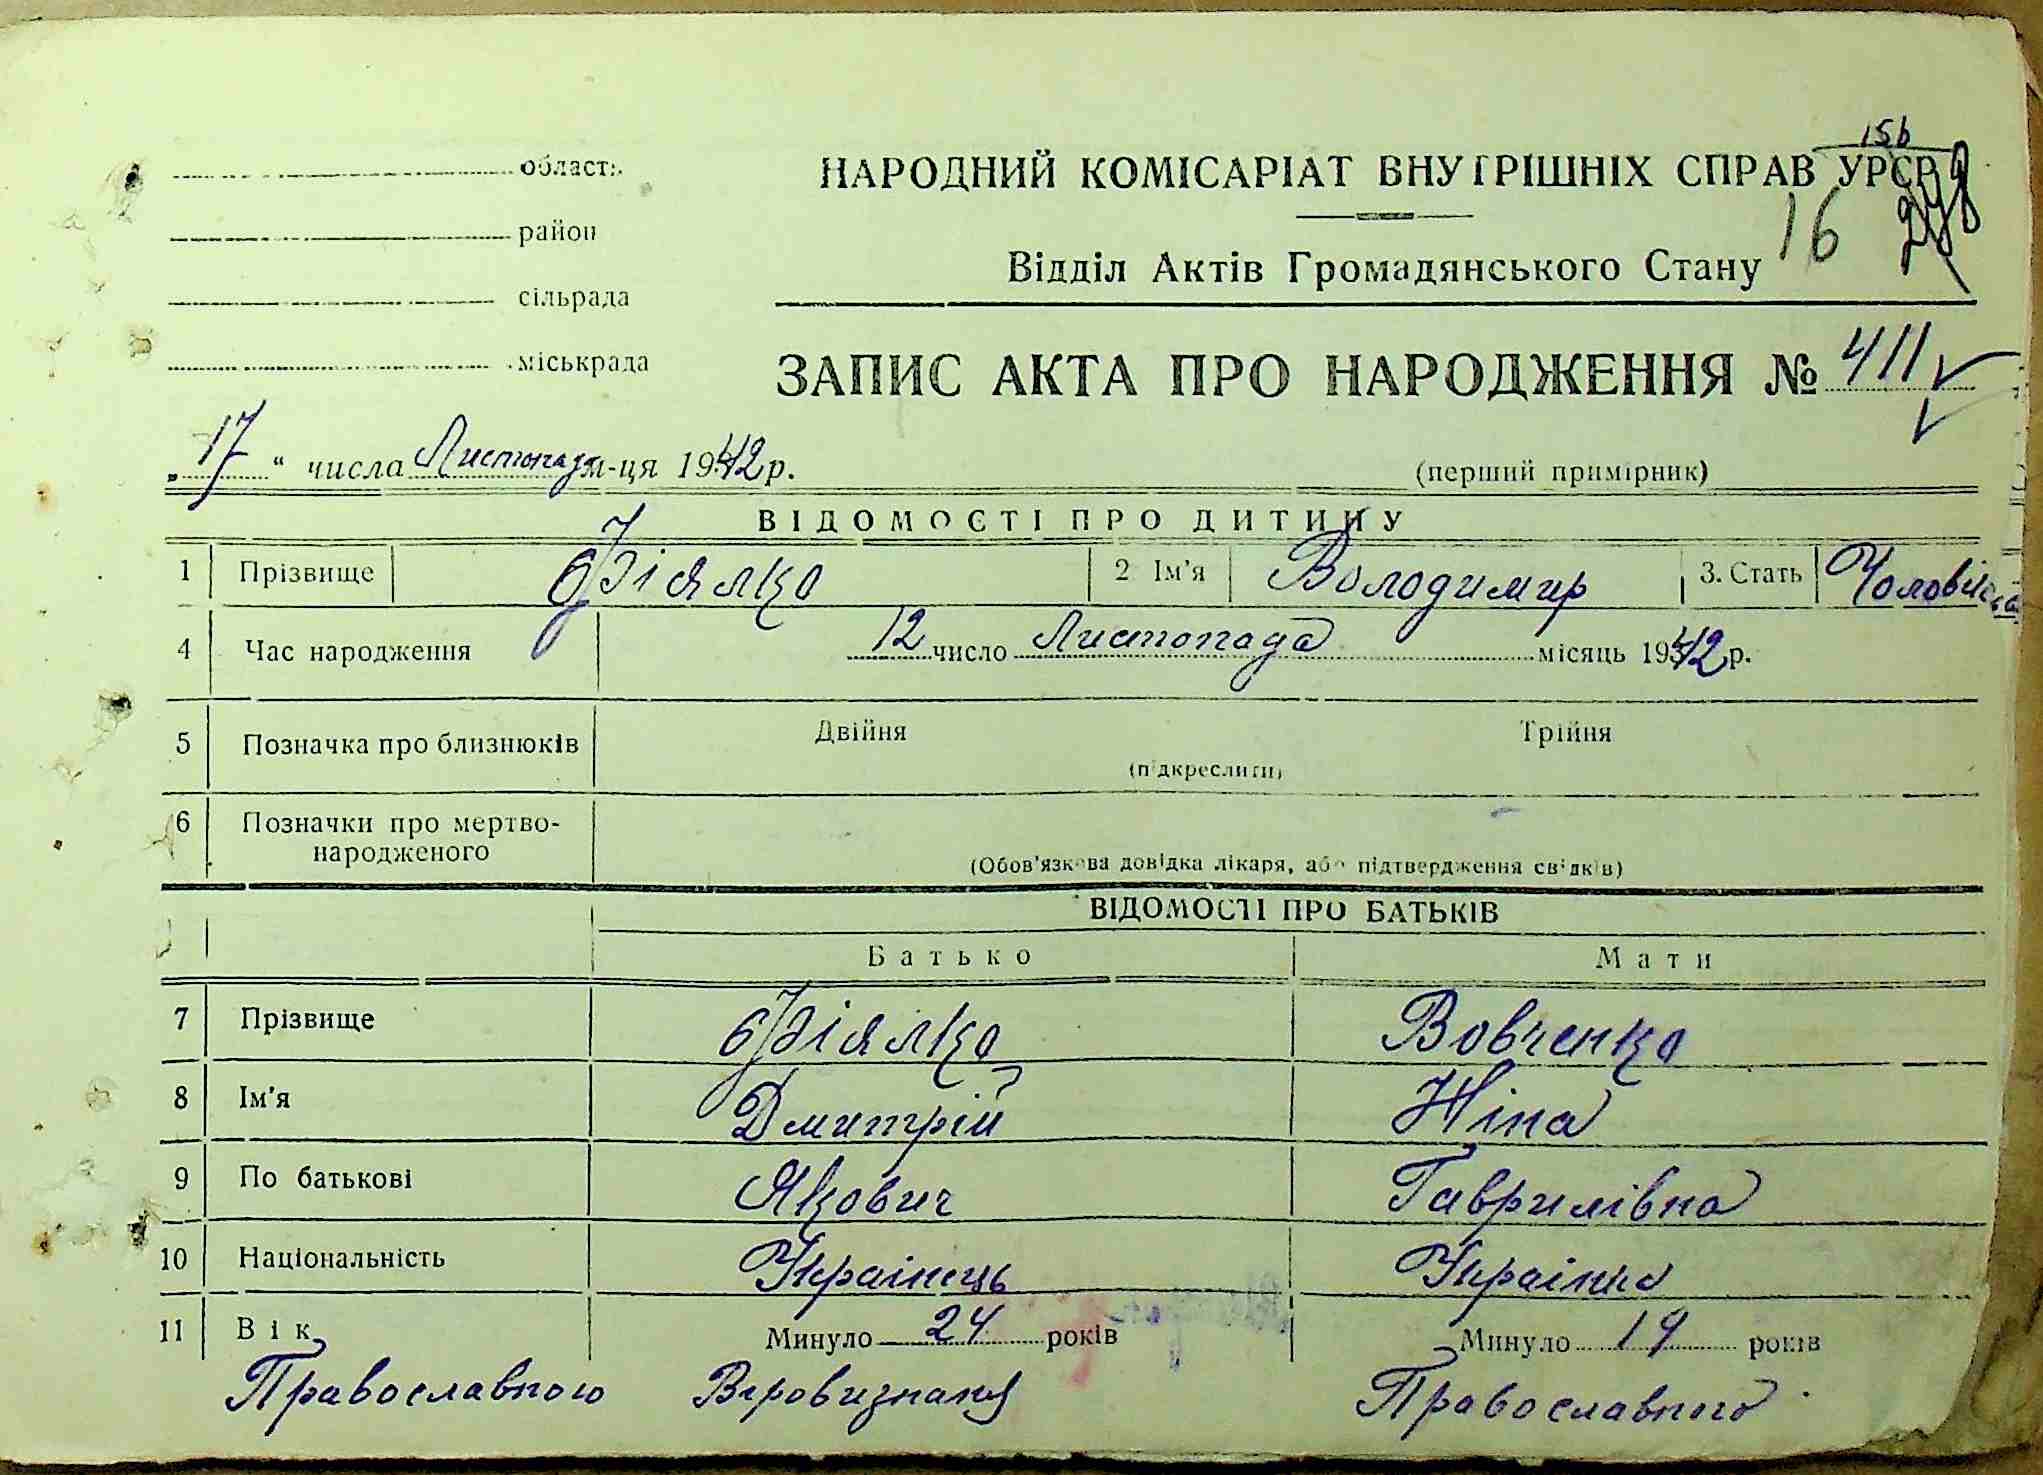 області
район
сільрада
міськрада
НАРОДНИЙ КОМІСАРІАТ ВНУТРІШНІХ СПРАВ УРСР
16
Відділ Актів Громадянського Стану
ЗАПИС АКТА ПРО НАРОДЖЕННЯ № 411
„17“ числа Листопада м-ця 1942 р.
(перший примірник)
ВІДОМОСТІ ПРО ДИТИНУ
1 Прізвище Фіялко 2 Ім'я Володимир 3. Стать Чоловіча
4 Час народження 12 число Листопада місяць 1942 р.
5 Позначка про близнюків Двійня Трійня
(підкреслити)
6 Позначки про мертво-
народженого
(Обов'язкова довідка лікаря, або підтвердження свідків)
ВІДОМОСТІ ПРО БАТЬКІВ
Батько Мати
7 Прізвище Фіялко Вовченко
8 Ім'я Дмитрій Ніна
9 По батькові Якович Гаврилівна
10 Національність Українець Українка
11 Вік Минуло 24 років Минуло 19 років
Православного Віровизнаня Православного